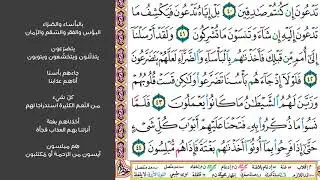 تَدْعُونَ إِن كُنتُمْ صَٰدِقِينَ ٤٠ بَلْ إِيَّاهُ تَدْعُونَ فَيَكْشِفُ مَا
تَدْعُونَ إِلَيْهِ إِن شَآءَ وَتَنسَوْنَ مَا تُشْرِكُونَ ٤١ وَلَقَدْ أَرْسَلْنَآ
إِلَىٰٓ أُمَمٍ مِّن قَبْلِكَ فَأَخَذْنَٰهُم بِٱلْبَأْسَآءِ وَٱلضَّرَّآءِ لَعَلَّهُمْ يَتَضَرَّعُونَ
٤٢ فَلَوْلَآ إِذْ جَآءَهُم بَأْسُنَا تَضَرَّعُوا۟ وَلَٰكِن قَسَتْ قُلُوبُهُمْ
وَزَيَّنَ لَهُمُ ٱلشَّيْطَٰنُ مَا كَانُوا۟ يَعْمَلُونَ ٤٣ فَلَمَّا
نَسُوا۟ مَا ذُكِّرُوا۟ بِهِۦ فَتَحْنَا عَلَيْهِمْ أَبْوَٰبَ كُلِّ شَىْءٍ
حَتَّىٰٓ إِذَا فَرِحُوا۟ بِمَآ أُوتُوٓا۟ أَخَذْنَٰهُم بَغْتَةً فَإِذَا هُم مُّبْلِسُونَ ٤٤
بالبأساء والضراء
البؤس والفقر والسقم والزمان
يتضرعون
يتذللون ويتخشعون ويتوبون
جاءهم بأسنا
عذابنا
كل شيء
من النعم الكثيرة استدراجا لهم
أخذناهم بغتة
أنزلنا بهم العذاب فجأة
هم مبلسون
آيسون من الرحمة أو مكتئبون